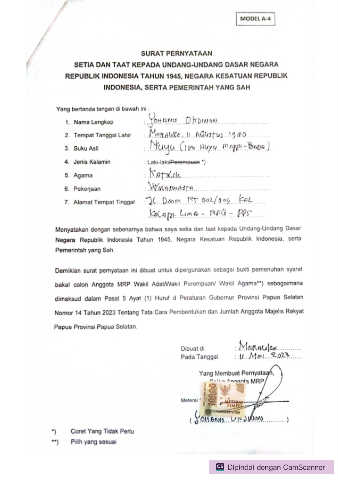 MODEL A-4
SURAT PERNYATAAN
SETIA DAN TAAT KEPADA UNDANG-UNDANG DASAR NEGARA
REPUBLIK INDONESIA TAHUN 1945, NEGARA KESATUAN REPUBLIK
INDONESIA, SERTA PEMERINTAH YANG SAH
Yang bertanda tangan di bawah ini
1. Nama Lengkap :
2. Tempat Tanggal Lahir : Merauke, 11 Agustus
3. Suku Asli : Muyu
4. Jenis Kelamin : Laki-laki/Perempuan *)
5. Agama : Katolik
6. Pekerjaan : Wiraswasta
7. Alamat Tempat Tinggal : Jl.
Kelapa Lima -
Menyatakan dengan sebenarnya bahwa saya setia dan taat kepada Undang-Undang Dasar
Negara Republik Indonesia Tahun 1945, Negara Kesatuan Republik Indonesia, serta
Pemerintah yang Sah.
Demikian surat pernyataan ini dibuat untuk dipergunakan sebagai bukti pemenuhan syarat
bakal calon Anggota MRP Wakil Adat/Wakil Perempuan/ Wakil Agama**) sebagaimana
dimaksud dalam Pasal 5 Ayat (1) Huruf d Peraturan Gubernur Provinsi Papua Selatan
Nomor 14 Tahun 2023 Tentang Tata Cara Pembentukan dan Jumlah Anggota Majelis Rakyat
Papua Provinsi Papua Selatan.
Dibuat di : Merauke
Pada Tanggal : 11 Mei 2023
Yang Membuat Pernyataan,
Anggota MRP
Meterai
*) Coret Yang Tidak Perlu
**) Pilih yang sesuai
CS Dipindai dengan CamScanner